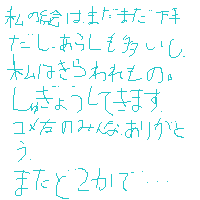 私の絵は.まだまだ下手
だし.あらしも多いし.
私はきらわれもの。
しゅぎょうしてきます.
コメ右のみんな.ありがと
う.
またどこかで…